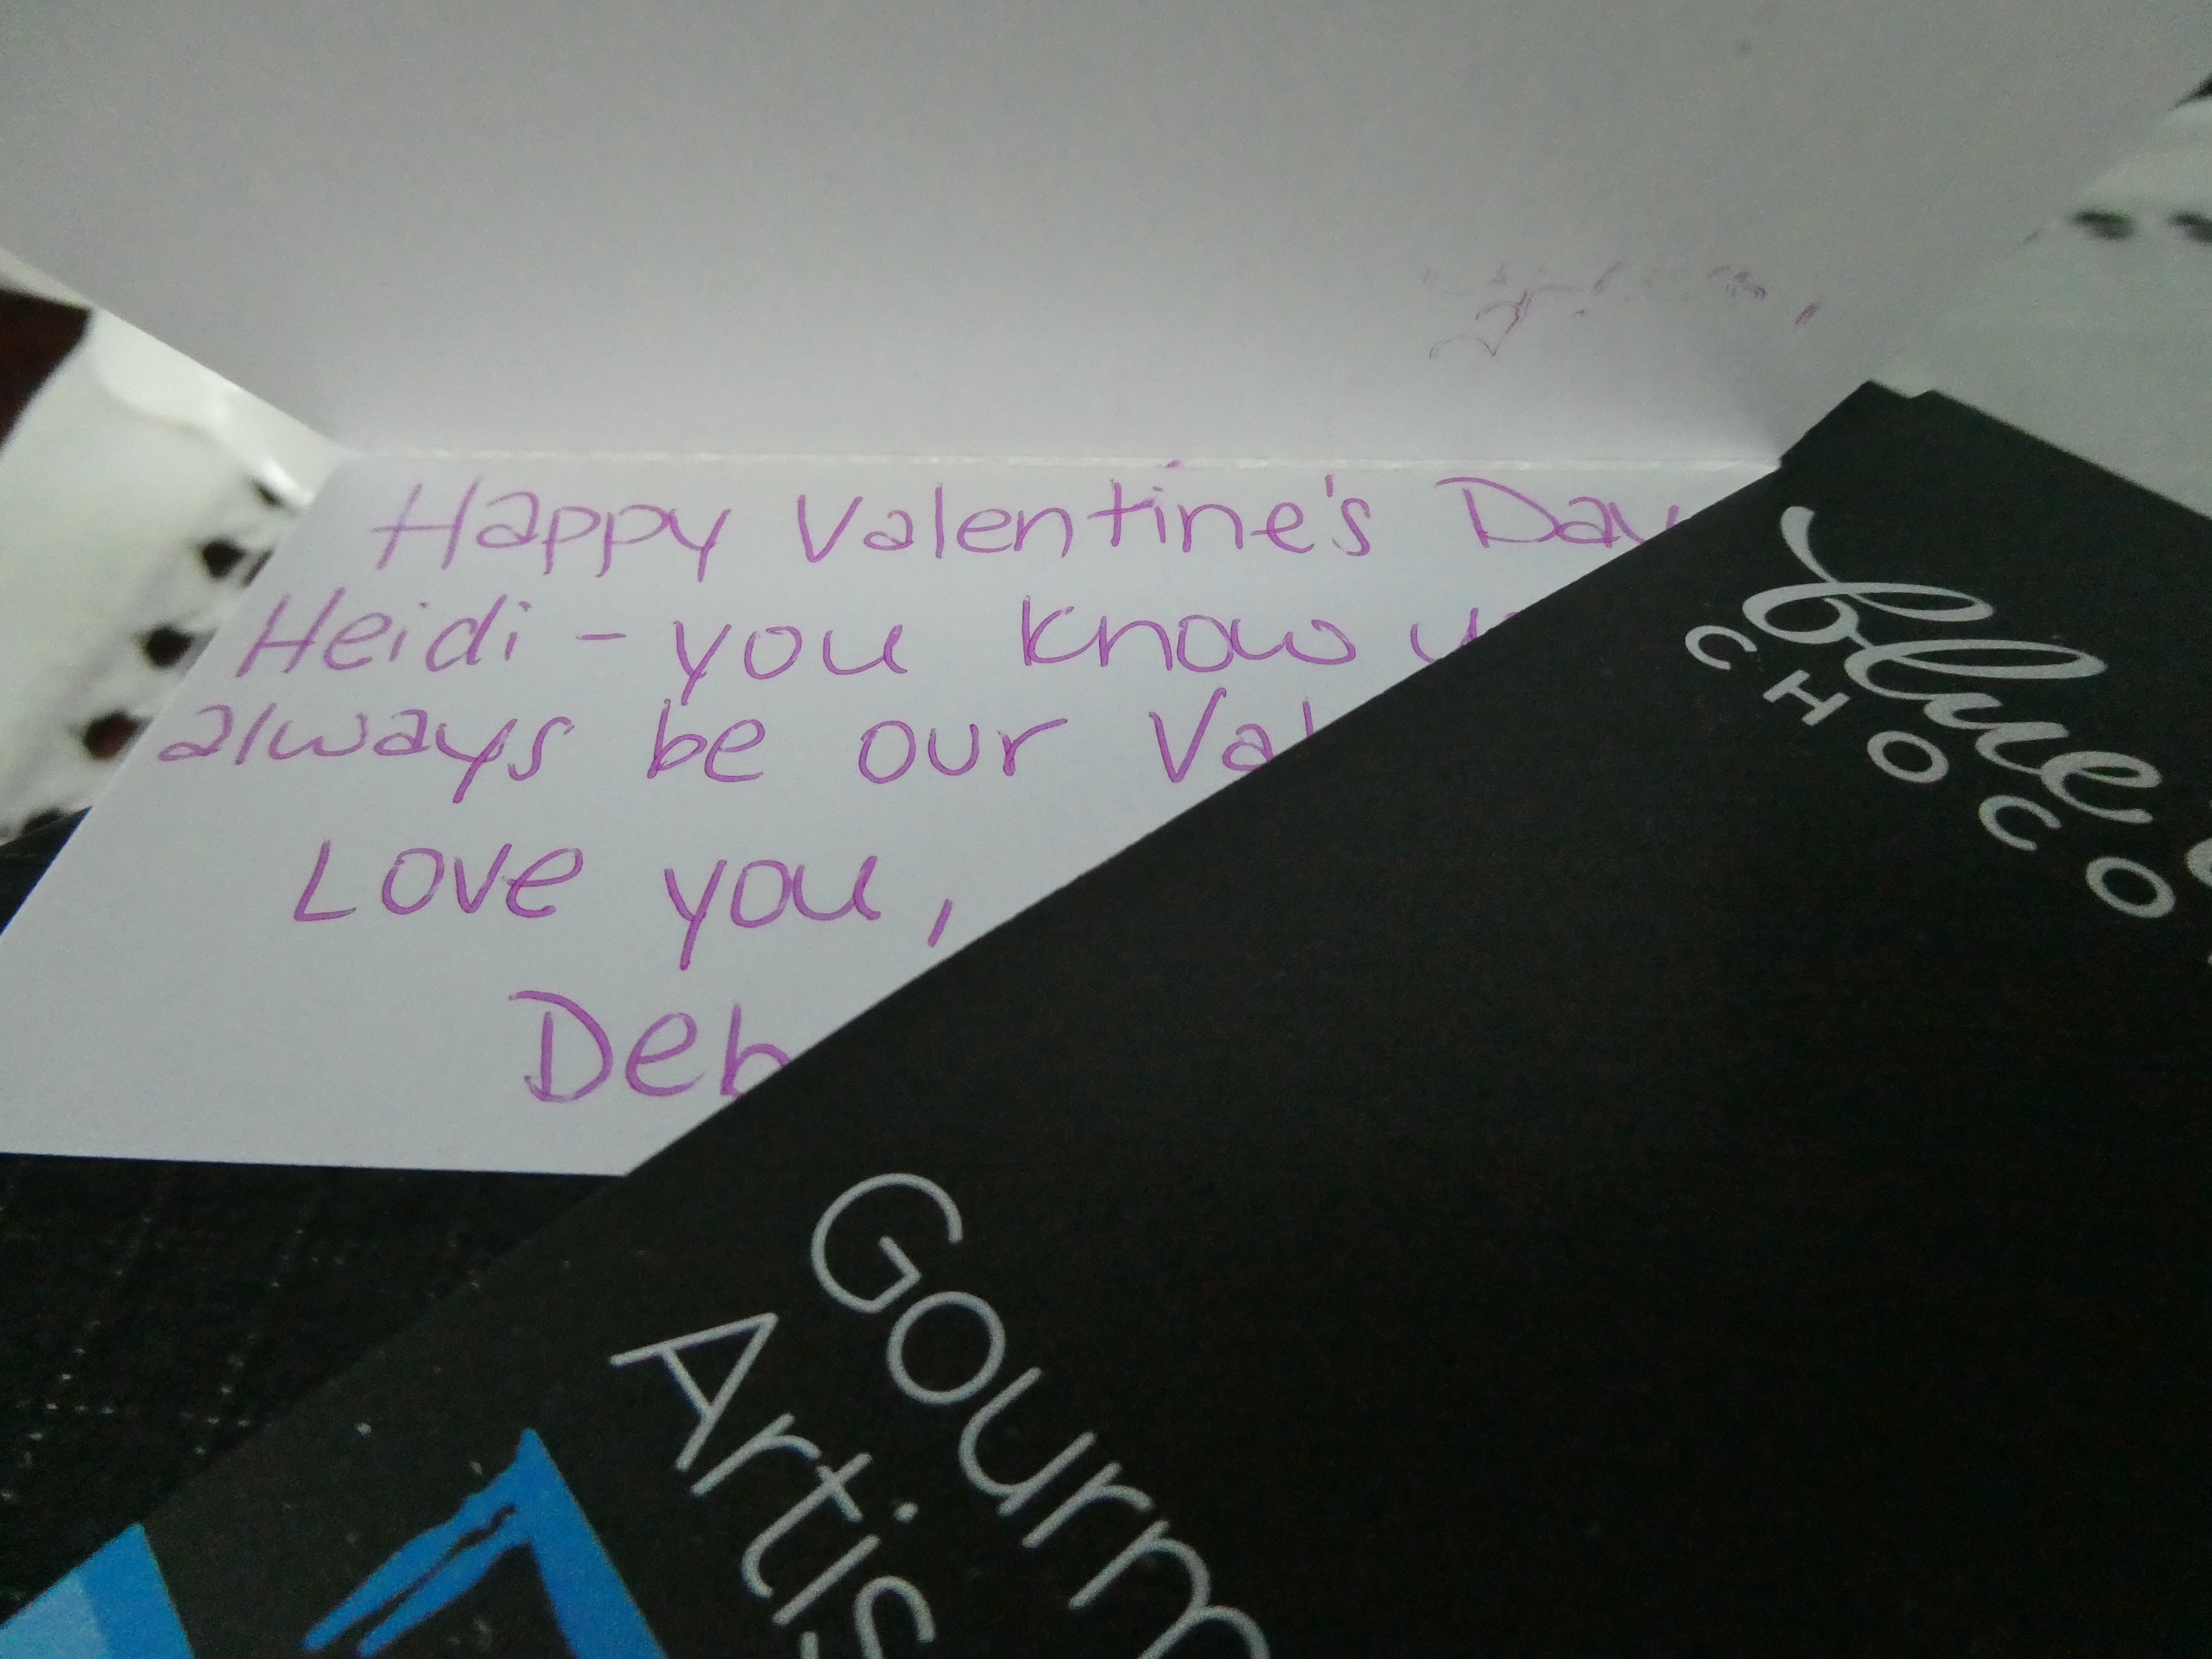 Happy Valentine's Day
Heidi - you know
always be our
Love you,
blue
CHOCO
Gourm
Artis